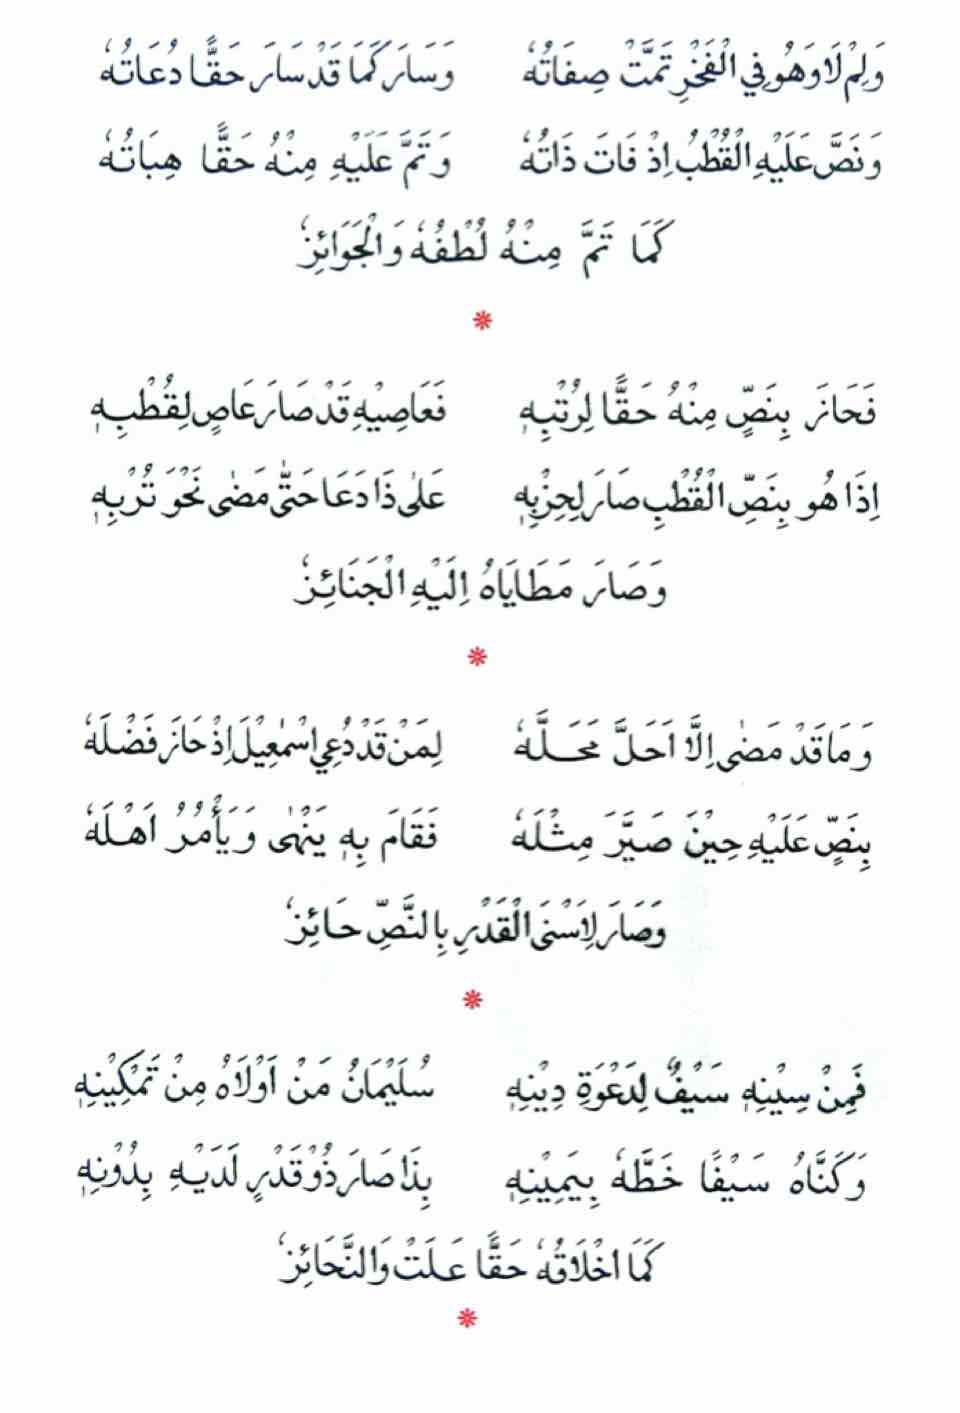 وَلِمْ لَا وَهُوَ فِي الْفَخْرِ تَمَّتْ صِفَاتُهٗ وَسَارَ كَمَا قَدْ سَارَ حَقًّا دُعَاتُهٗ
وَنَصَّ عَلَيْهِ الْقُطْبُ اِذْ فَاتَ ذَاتُهٗ وَتَمَّ عَلَيْهِ مِنْهُ حَقًّا هِبَاتُهٗ
كَمَا تَمَّ مِنْهُ لُطْفُهٗ وَالْجَوَائِزٗ
❋
فَحَازَ بِنَصٍّ مِنْهُ حَقًّا لِرُتْبِهٖ فَعَاصِيْهِ قَدْ صَارَ عَاصٍ لِقُطْبِهٖ
اِذَا هُو بِنَصِّ الْقُطْبِ صَارَ لِحِزْبِهٖ عَلٰى ذَا دَعَا حَتّٰى مَضٰى نَحْوَ تُرْبِهٖ
وَصَارَ مَطَايَاهُ اِلَيْهِ الْجَنَائِزٗ
❋
وَمَا قَدْ مَضٰى اِلَّا اَحَلَّ مَحَلَّهٗ لِمَنْ قَدْ دُعِي اِسْمٰعِيْلَ اِذْ حَازَ فَضْلَهٗ
بِنَصٍّ عَلَيْهِ حِيْنَ صَيَّرَ مِثْلَهٗ فَقَامَ بِهٖ يَنْهٰى وَيَأْمُرُ اَهْلَهٗ
وَصَارَ لِاَسْنَى الْقَدْرِ بِالنَّصِّ حَائِزٗ
❋
فَمِنْ سِيْنِهٖ سَيْفٌ لِدَعْوَةِ دِيْنِهٖ سُلَيْمَانُ مَنْ اَوْلَاهُ مِنْ تَمْكِيْنِهٖ
وَكَنَّاهُ سَيْفًا خَطَّهٗ بِيَمِيْنِهٖ بِذَا صَارَ ذُوْ قَدْرٍ لَدَيْهِ بِدُوْنِهٖ
كَمَا اَخْلَاقُهٗ حَقًّا عَلَتْ وَالنَّحَائِزٗ
❋